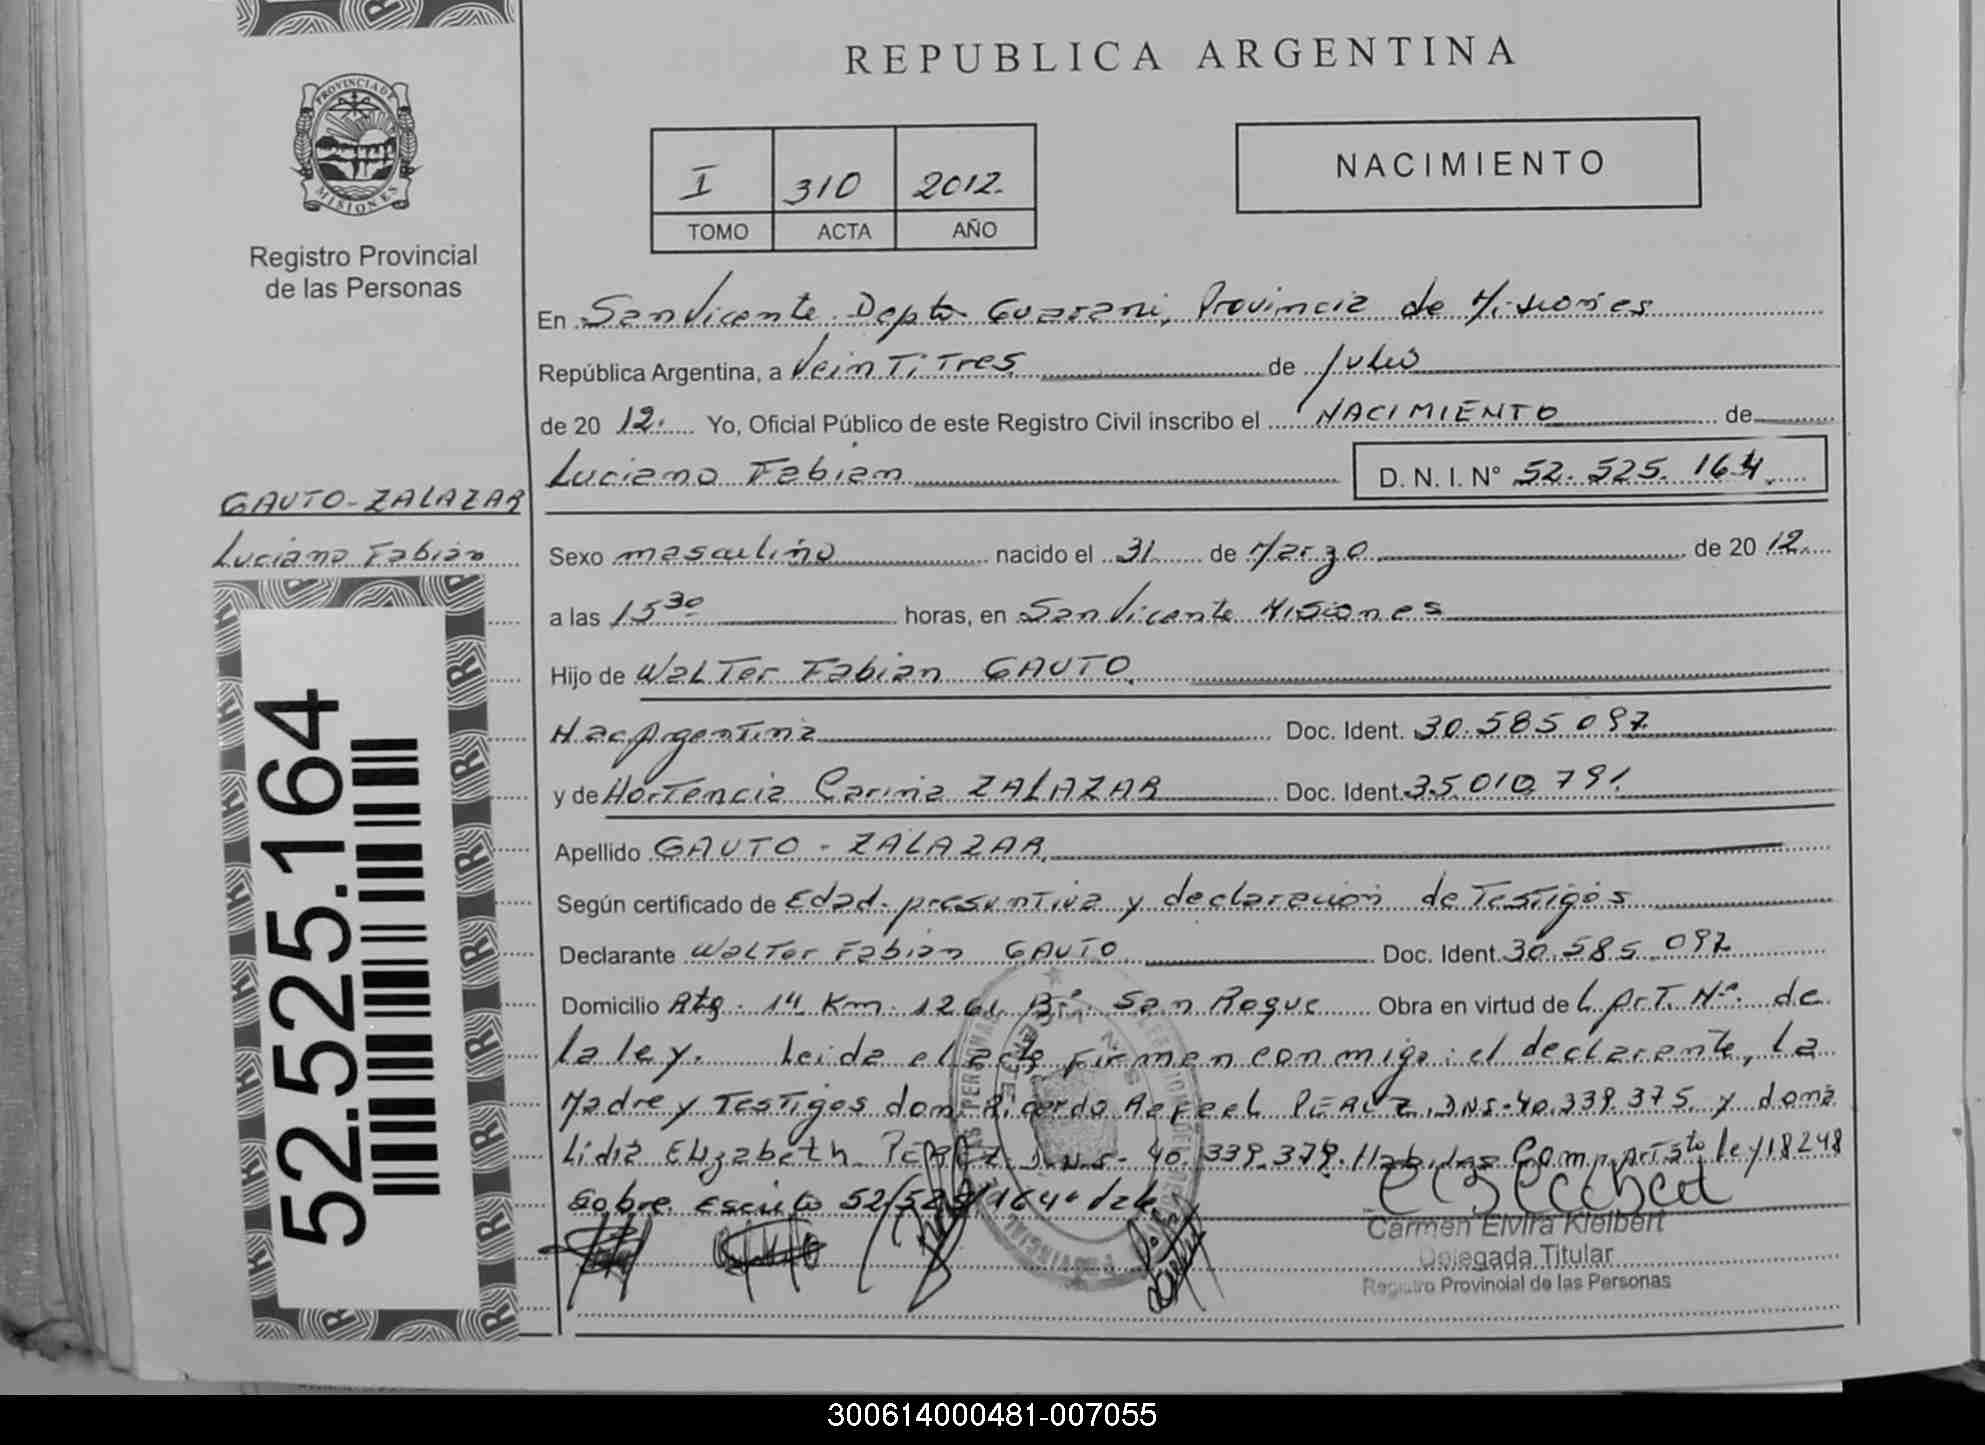 REPUBLICA ARGENTINA
PROVINCIA DE
MISIONES
Registro Provincial
de las Personas
I 310 2012.
TOMO ACTA AÑO
NACIMIENTO
En San Vicente Depto Guarani, Provincia de Misiones
República Argentina, a Veintitres de Julio
de 20 12. Yo, Oficial Público de este Registro Civil inscribo el NACIMIENTO de
Luciano Fabian D. N. I. N° 52.525.164
GAUTO-ZALAZAR
Luciano Fabian
Sexo masculino nacido el 31 de Marzo de 20 12.
a las 15 30 horas, en San Vicente Misiones
Hijo de Walter Fabian GAUTO.
Nac Argentina Doc. Ident. 30.585.097
y de Hortencia Carina ZALAZAR Doc. Ident. 35.010.791
Apellido GAUTO - ZALAZAR
Según certificado de Edad presuntiva y declaración de Testigos
Declarante Walter Fabian GAUTO Doc. Ident. 30.585.097
Domicilio Km. San Roque Obra en virtud de Art. Nº. de
la ley. Leida el acta Firman conmigo: el declarante, la
Madre y Testigos don Ricardo 40.339.375 y doña
Lidia Elizabeth 40.339.379. ley 18248
Sobre Escrito 52/525/164 Vale
52.525.164
Carmen Elvira Kleibert
Delegada Titular
Registro Provincial de las Personas
300614000481-007055